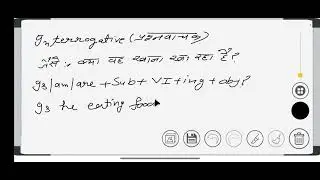 Interrogative (प्रश्नवाचक)
जैसे:- क्या वह खाना खा रहा है?
Is/am/are + Sub + V1 + ing + obj?
Is he eating food